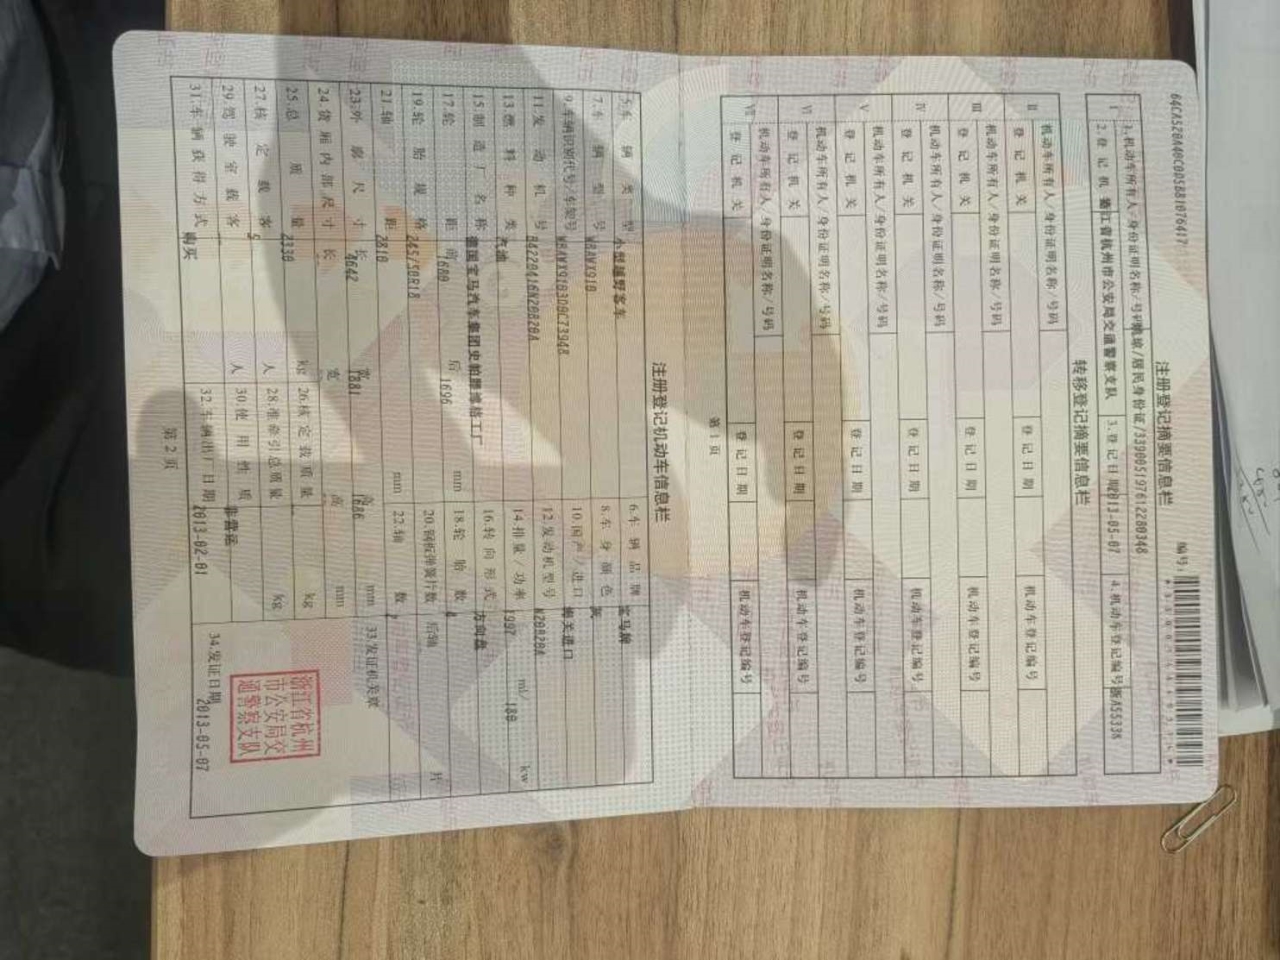 64CA520A40C00588107641?
编号:
注册登记摘要信息栏
I 1.机动车所有人/身份证明名称/号码 /居民身份证/339005197612280348
2.登记机关 浙江省杭州市公安局交通警察支队 3.登记日期 2013-05-07 4.机动车登记编号 浙A55338
转移登记摘要信息栏
II 机动车所有人/身份证明名称/号码
登记机关 登记日期 机动车登记编号
III 机动车所有人/身份证明名称/号码
登记机关 登记日期 机动车登记编号
IV 机动车所有人/身份证明名称/号码
登记机关 登记日期 机动车登记编号
V 机动车所有人/身份证明名称/号码
登记机关 登记日期 机动车登记编号
VI 机动车所有人/身份证明名称/号码
登记机关 登记日期 机动车登记编号
VII 机动车所有人/身份证明名称/号码
登记机关 登记日期 机动车登记编号
第 1 页
注册登记机动车信息栏
5.车辆类型 小型越野客车 6.车辆品牌 宝马牌
7.车辆型号 WBAWX910 8.车身颜色 灰
9.车辆识别代号/车架号 WBAWX9103D0C73948 10.国产/进口 海关进口
11.发动机号 A4220416N20B20A 12.发动机型号 N20B20A
13.燃料种类 汽油 14.排量/功率 1997 ml/ 180 kw
15.制造厂名称 德国宝马汽车集团史帕坦堡工厂 16.转向形式 方向盘
17.轮距 前 1680 后 1696 mm 18.轮胎数 4
19.轮胎规格 245/50R18 20.钢板弹簧片数 后轴 片
21.轴距 2810 mm 22.轴数 2
23.外廓尺寸 长 4642 宽 1881 高 1686 mm 33.发证机关章
24.货厢内部尺寸 长 宽 高 mm
25.总质量 2330 kg 26.核定载质量 kg
27.核定载客 5 人 28.准牵引总质量 kg
29.驾驶室载客 人 30.使用性质 非营运
31.车辆获得方式 购买 32.车辆出厂日期 2013-02-01 34.发证日期 2013-05-07
浙江省杭州
市公安局交
通警察支队
第 2 页